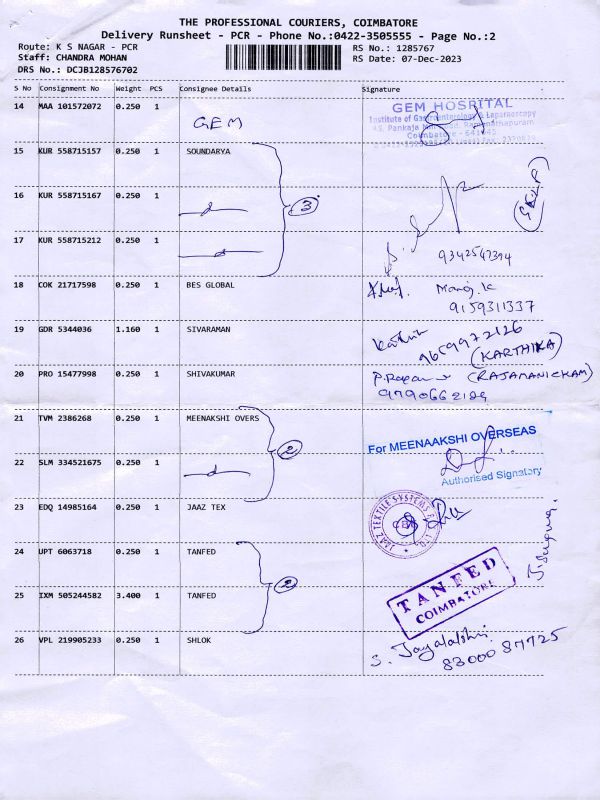 THE PROFESSIONAL COURIERS, COIMBATORE
Delivery Runsheet - PCR - Phone No.:0422-3505555 - Page No.:2
Route: K S NAGAR - PCR
RS No.: 1285767
Staff: CHANDRA MOHAN
RS Date: 07-Dec-2023
DRS No.: DCJB128576702
S No Consignment No Weight PCS Consignee Details Signature
14 MAA 101572072 0.250 1 GEM
GEM HOSPITAL
Institute of Gastroenterology & Laparoscopy
Coimbatore - 641045
15 KUR 558715157 0.250 1 SOUNDARYA
16 KUR 558715167 0.250 1
3
17 KUR 558715212 0.250 1
9342547394
18 COK 21717598 0.250 1 BES GLOBAL
Manoj k
9159311337
19 GDR 5344036 1.160 1 SIVARAMAN
9659972126
(KARTHIKA)
20 PRO 15477998 0.250 1 SHIVAKUMAR
(RAJAMANICKAM)
9790662129
21 TVM 2386268 0.250 1 MEENAKSHI OVERS
2
For MEENAAKSHI OVERSEAS
Authorised Signatory
22 SLM 334521675 0.250 1
23 EDQ 14985164 0.250 1 JAAZ TEX
JAAZ TEXTILE SYSTEMS P LTD
CBE
24 UPT 6063718 0.250 1 TANFED
2
TANFED
COIMBATORE
25 IXM 505244582 3.400 1 TANFED
26 VPL 219905233 0.250 1 SHLOK
S. Jayalakshmi
83000 87725